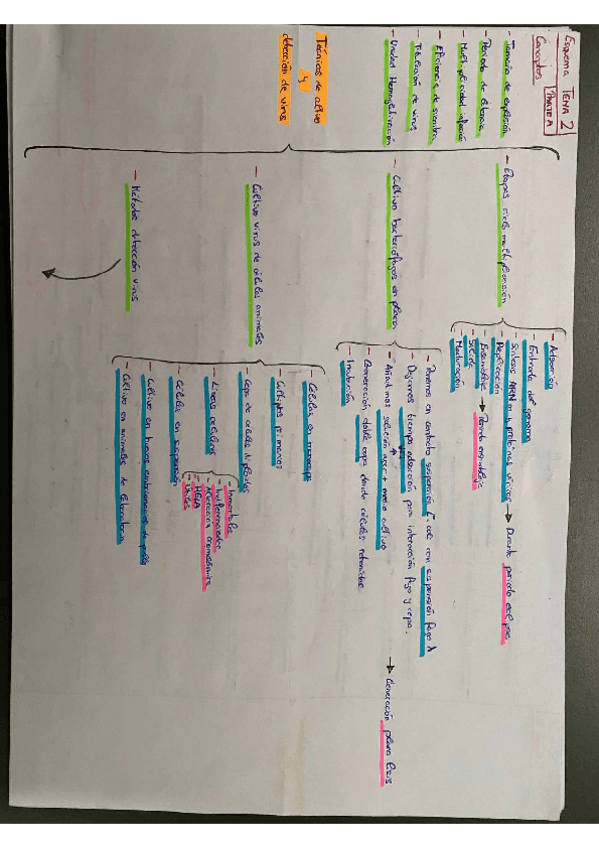 Esquema TEMA 2
PARTE A
Conceptos
- Tamaño de explosión
- Periodo de latencia
- Multiplicidad infección
- Eficiencia de siembra
- Titulación de virus
- Unidad Hemaglutinación
Técnicas de cultivo
y
detección de virus
- Etapas ciclo multiplicación
- Adsorción
- Entrada del genoma
- Síntesis ARN m y proteínas víricas → Durante periodo eclipse
- Replicación
- Ensamblaje → Periodo ensamblaje
- Salida
- Maduración
- Cultivo bacteriófagos en placa
- Ponemos en contacto suspensión E. coli con suspensión fago λ
- Dejamos tiempo adsorción para interacción fago y cepa.
- Añadimos solución agar + medio cultivo
- Generación doble capa donde células
- Incubación
→ Generación placas lisis
- Cultivo virus de células animales
- Células en monocapa
- Cultivos primarios
- Cepa de células diploides
- Líneas celulares
- Inmortales
- Transformadas
- HELA
- Células en suspensión
- Cultivo en huevos embrionarios de pollo
- Cultivo en animales de laboratorio
- Métodos detección virus